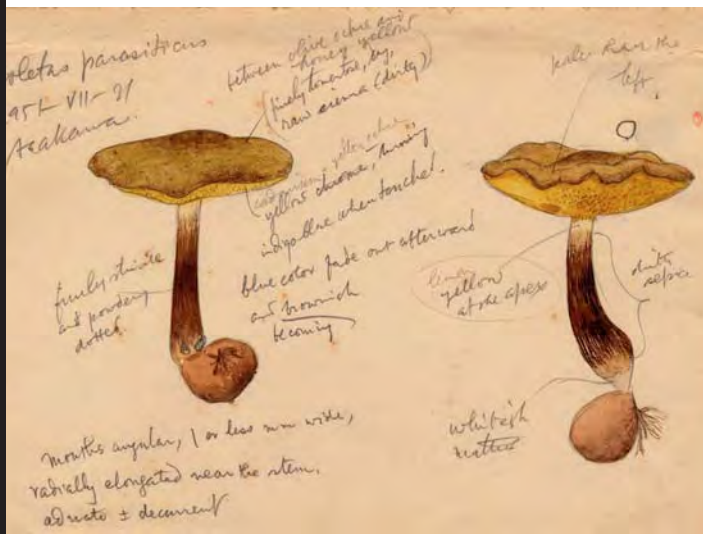 oletus parasiticus
951-VII-21
Asakawa.
between olive ochre and
honey yellow
(finely tomentose, dry,
raw sienna (dirty))
yellow ochre,
yellow chrome, turning
indigo blue when touched.
blue color fade out afterward
and brownish
becoming
finely striate
and powdery
dotted.
mouths angular, 1 or less mm wide,
radially elongated near the stem,
adnate ± decurrent
paler than the
left.
lemon
yellow
at the apex
dirty
sepia
whitish
matted